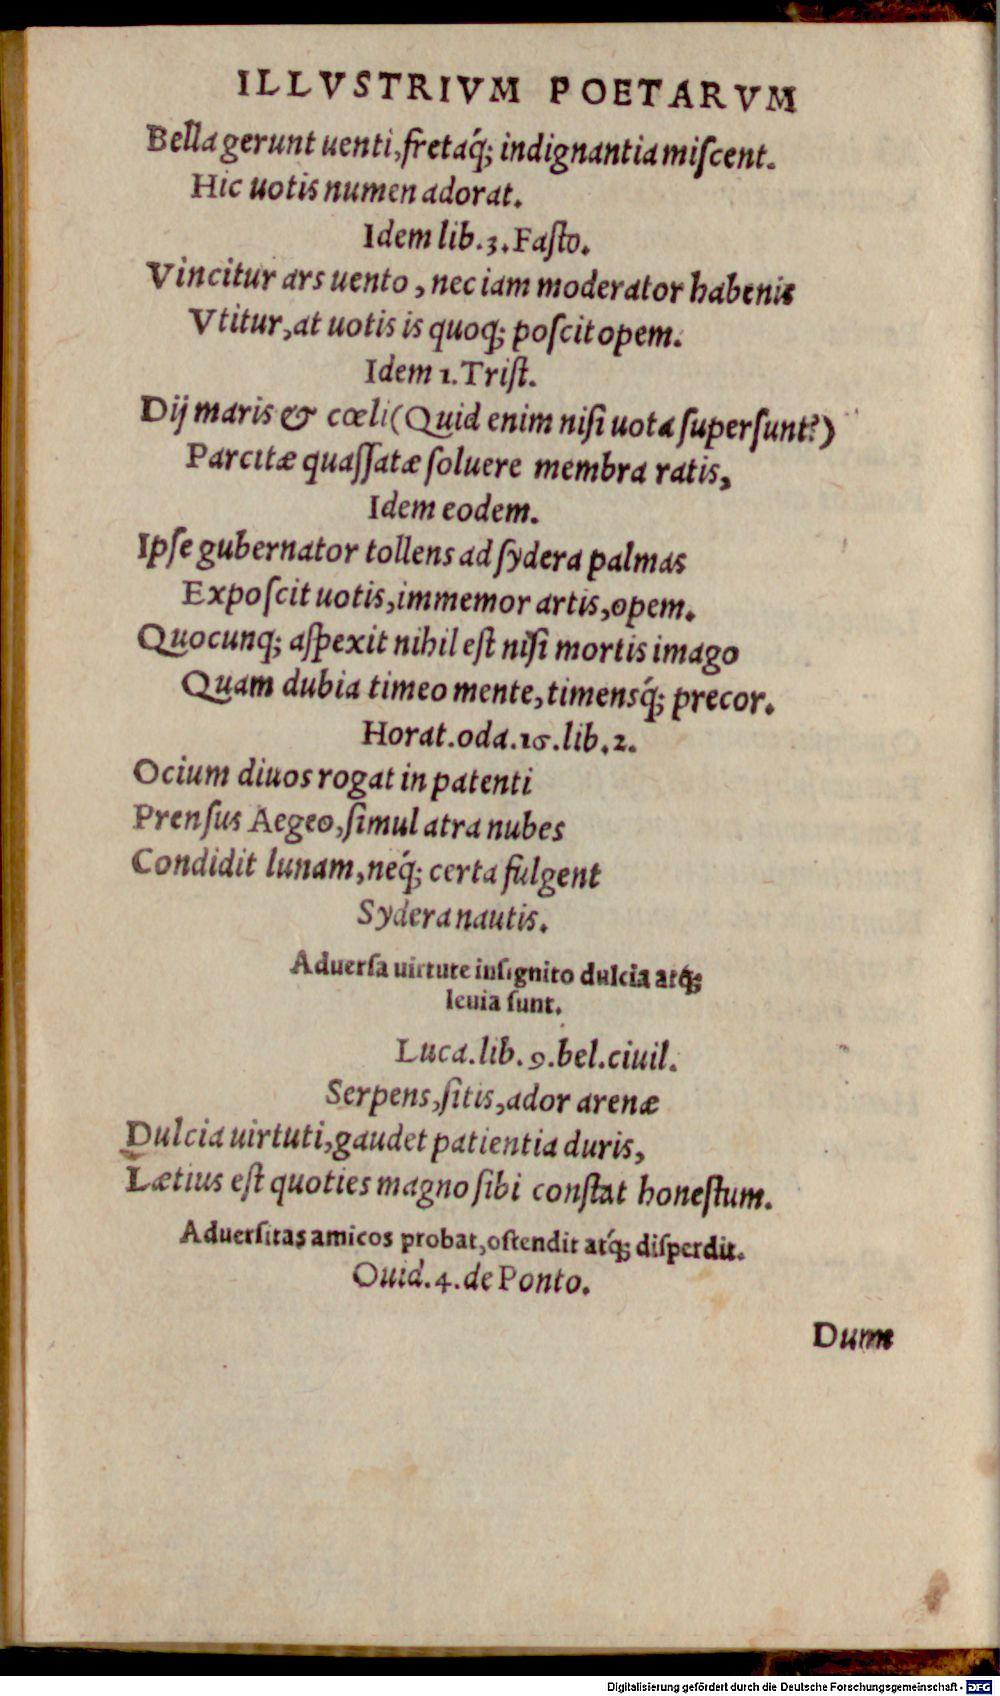 ILLVSTRIVM POETARVM
Bella gerunt uenti, fretaq́; indignantia miſcent.
Hic uotis numen adorat.
Idem lib. 3. Faſto.
Vincitur ars uento, nec iam moderator habenis
Vtitur, at uotis is quoq; poſcit opem.
Idem 1. Triſt.
Dij maris & cœli (Quid enim niſi uota ſuperſunt?)
Parcitæ quaſſatæ ſoluere membra ratis,
Idem eodem.
Ipſe gubernator tollens ad ſydera palmas
Expoſcit uotis, immemor artis, opem.
Quocunq; aſpexit nihil eſt niſi mortis imago
Quam dubia timeo mente, timensq́; precor.
Horat. oda. 16. lib. 2.
Ocium diuos rogat in patenti
Prenſus Aegeo, ſimul atra nubes
Condidit lunam, neq́; certa fulgent
Sydera nautis.
Aduerſa uirtute inſignito dulcia atq́;
leuia ſunt.
Luca. lib. 9. bel. ciuil.
Serpens, ſitis, ador arenæ
Dulcia uirtuti, gaudet patientia duris,
Lætius eſt quoties magno ſibi conſtat honeſtum.
Aduerſitas amicos probat, oſtendit atq́; diſperdit.
Ouid. 4. de Ponto.
Dum
Digitalisierung gefördert durch die Deutsche Forschungsgemeinschaft - DFG